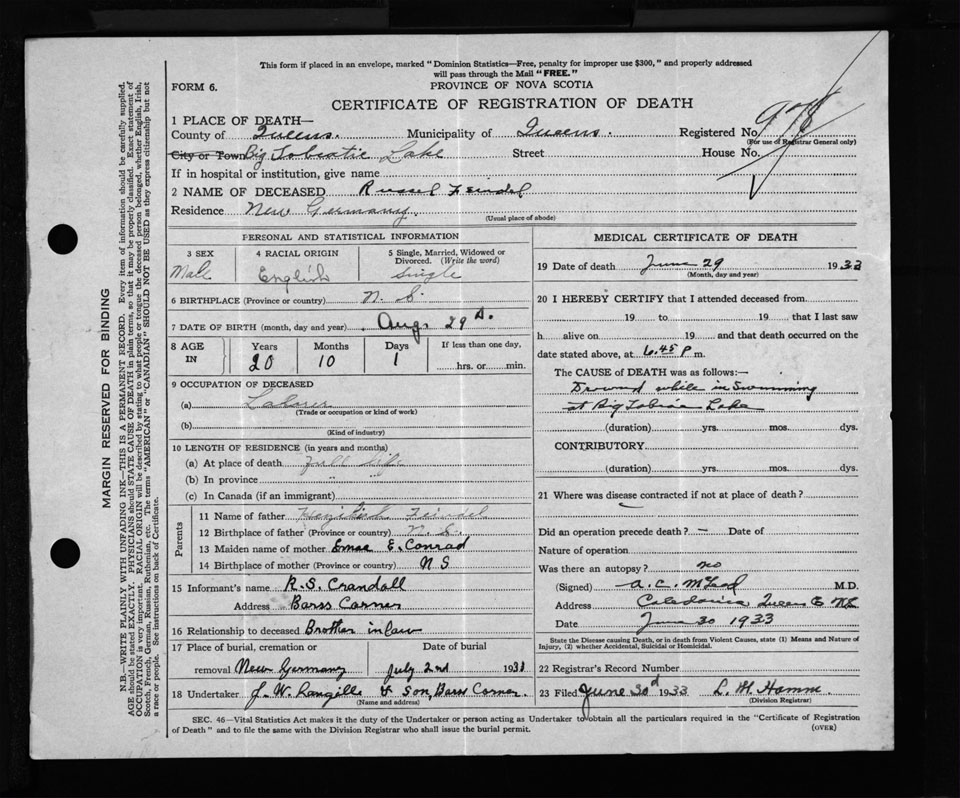 This form if placed in an envelope, marked "Dominion Statistics—Free, penalty for improper use $300," and properly addressed
will pass through the Mail "FREE."
FORM 6.
PROVINCE OF NOVA SCOTIA
CERTIFICATE OF REGISTRATION OF DEATH
1 PLACE OF DEATH—
County of Queens. Municipality of Queens. Registered No.
(For use of Registrar General only)
City or Town Big Tobiatic Lake Street House No.
If in hospital or institution, give name
2 NAME OF DECEASED Russel Feindel
Residence New Germany.
(Usual place of abode)
PERSONAL AND STATISTICAL INFORMATION
3 SEX 4 RACIAL ORIGIN 5 Single, Married, Widowed or Divorced. (Write the word)
Male English Single
6 BIRTHPLACE (Province or country) N. S.
7 DATE OF BIRTH (month, day and year) Aug. 29
8 AGE IN Years Months Days If less than one day,
20 10 1 hrs. or min.
9 OCCUPATION OF DECEASED
(a) Laborer
(Trade or occupation or kind of work)
(b)
(Kind of industry)
10 LENGTH OF RESIDENCE (in years and months)
(a) At place of death Full life
(b) In province " "
(c) In Canada (if an immigrant)
Parents
11 Name of father Feindel
12 Birthplace of father (Province or country) N. S.
13 Maiden name of mother E. Conrad
14 Birthplace of mother (Province or country) N S
15 Informant's name R.S. Crandall
Address Barss Corner
16 Relationship to deceased Brother in law
17 Place of burial, cremation or Date of burial
removal New Germany July 2nd 1933
18 Undertaker J. W. & Son, Barss Corner.
(Name and address)
MEDICAL CERTIFICATE OF DEATH
19 Date of death June 29 1933
(Month, day and year)
20 I HEREBY CERTIFY that I attended deceased from
19 to 19 that I last saw
h alive on 19 and that death occurred on the
date stated above, at 6.45 P m.
The CAUSE of DEATH was as follows:—
Drownd while in Swimming
at Big Lake
(duration) yrs. mos. dys.
CONTRIBUTORY
(duration) yrs. mos. dys.
21 Where was disease contracted if not at place of death?
Did an operation precede death? — Date of
Nature of operation
Was there an autopsy? no
(Signed) A. C. M.D.
Address Caledonia Queens Co NS
Date June 30 1933
State the Disease causing Death, or in death from Violent Causes, state (1) Means and Nature of
Injury, (2) whether Accidental, Suicidal or Homicidal.
22 Registrar's Record Number
23 Filed June 30d 1933 L. M. Hamm
(Division Registrar)
SEC. 46—Vital Statistics Act makes it the duty of the Undertaker or person acting as Undertaker to obtain all the particulars required in the "Certificate of Registration
of Death" and to file the same with the Division Registrar who shall issue the burial permit.
(OVER)
MARGIN RESERVED FOR BINDING
N.B.—WRITE PLAINLY WITH UNFADING INK—THIS IS A PERMANENT RECORD. Every item of information should be carefully supplied.
AGE should be stated EXACTLY. PHYSICIANS should STATE CAUSE OF DEATH in plain terms, so that it may be properly classified. Exact statement of
OCCUPATION is very important. RACIAL ORIGIN will be described by stating to what people or tongue the deceased person belonged, whether English, Irish,
Scotch, French, German, Russian, Ruthenian, etc. The terms "AMERICAN" or "CANADIAN" SHOULD NOT BE USED as they express citizenship but not
a race or people. See instructions on back of Certificate.